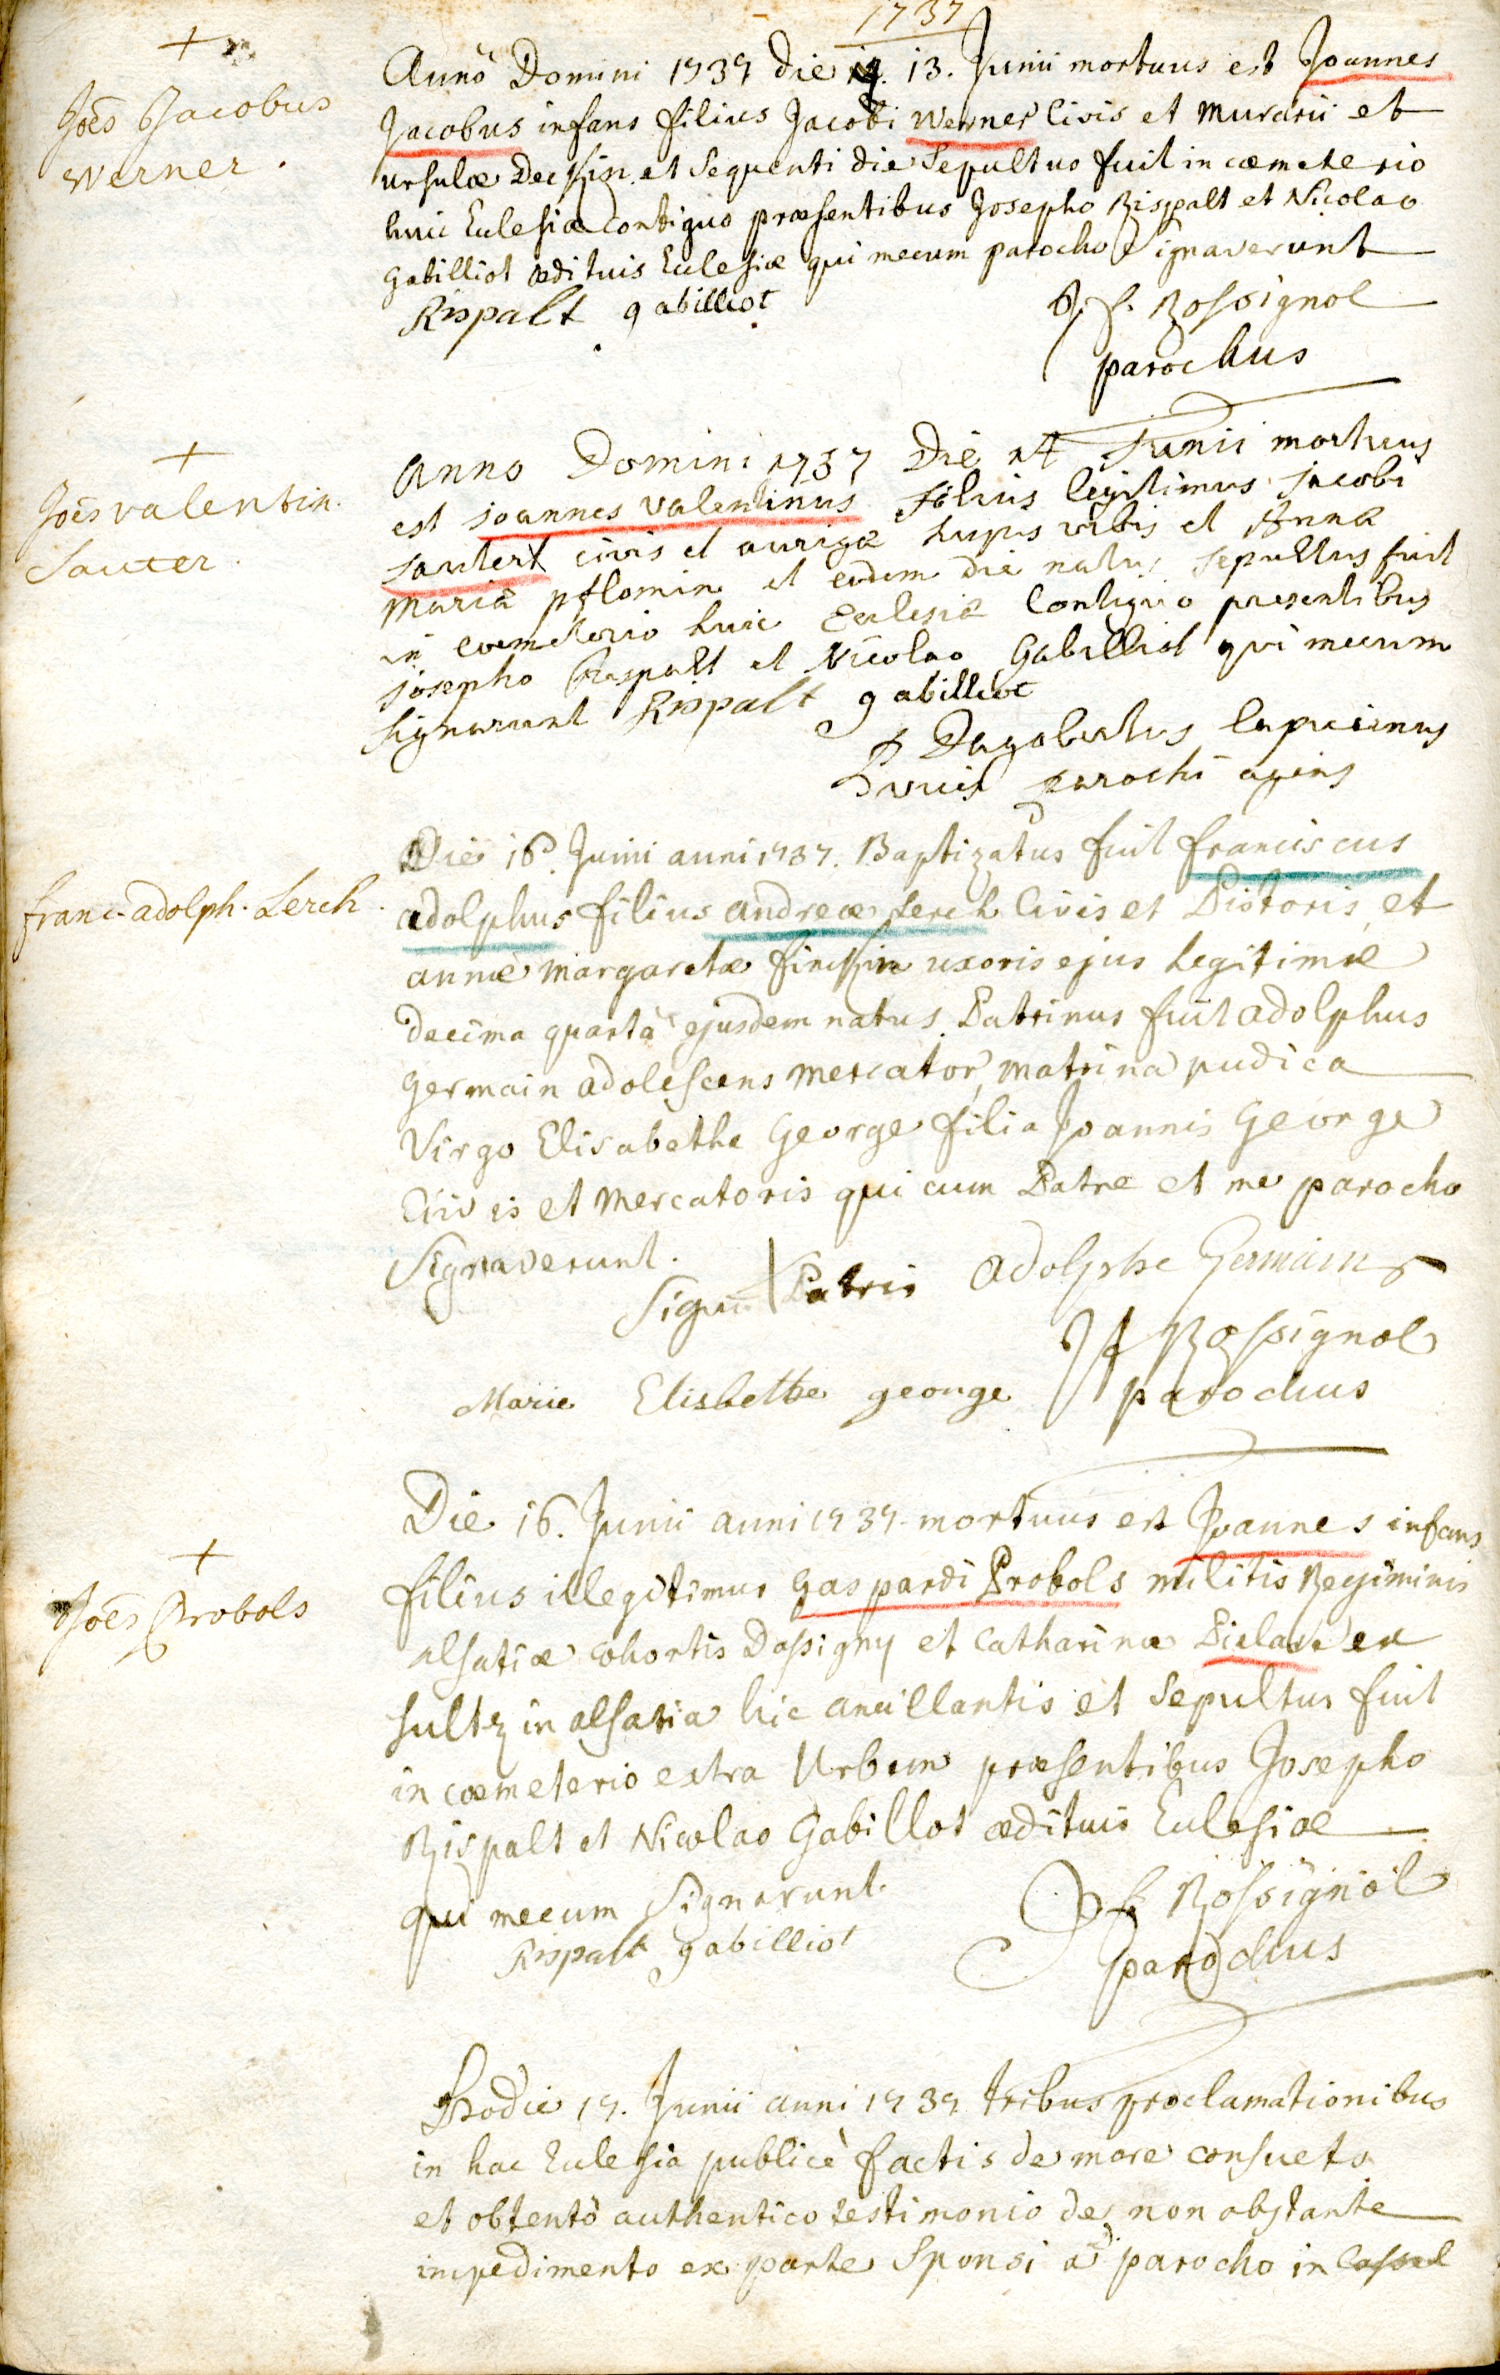 1737
+
Joes Jacobus
Werner.
Anno Domini 1737 die 13. Junii mortuus est Joannes
Jacobus infans filius Jacobi Werner Civis et Murarii et
ursulæ et sequenti die Sepultus fuit in cæmeterio
huic Eclesiæ Contiguo præsentibus Josepho Rispalt et Nicolao
gabilliot ædituis Eclesiæ qui mecum parocho Signaverunt
Rispalt gabilliot
J f. Rossignol
parochus
+
Joes valentin.
Sauter.
Anno Domini 1737 Die 14 Junii mortuus
est joannes valentinus filius legitimus jacobi
sautert civis et aurigæ hujus urbis et Annæ
Maria pflomin et eodem die natus sepultus fuit
in coemeterio huic Eclesiæ Contiguo presentibus
josepho Rispalt et Nicolao Gabilliot qui mecum
signarunt Rispalt gabilliot
P Dagobertus Capucinus
vices parochi agens
franc. adolph. Lerch.
Die 16. Junii anni 1737. Baptizatus fuit franciscus
adolphus filius andreæ Lerch Civis et Pistoris et
annæ margaretæ finckin uxoris ejus legitimæ
decima quarta ejusdem natus. Patrinus fuit adolphus
germain adolescens mercator, matrina pudica
Virgo Elisabetha George filia Joannis George
Civis et mercatoris qui cum Patre et me parocho
Signaverunt.
Signum Patris Adolphe Germain
J f Rossignol
Marie Elisbethe george parochus
+
Joes Probols
Die 16. Junii anni 1737. mortuus est Joannes infans
filius illegitimus gaspardi Probols militis Regiminis
alsatiæ cohortis Dassigny et Catharinæ ex
sultz in alsatia hic ancillantis et Sepultus fuit
in cæmeterio extra Urbem præsentibus Josepho
Rispalt et Nicolao Gabillot ædituis Eclesiæ
qui mecum Signarunt.
Rispalt gabilliot
J f Rossignol
parochus
Hodie 17. Junii anni 1737 tribus proclamationibus
in hac Eclesia publicè factis de more consueto
et obtentô authentico testimonio de non obstante
impedimento ex parte Sponsi a d. parocho in Cassel